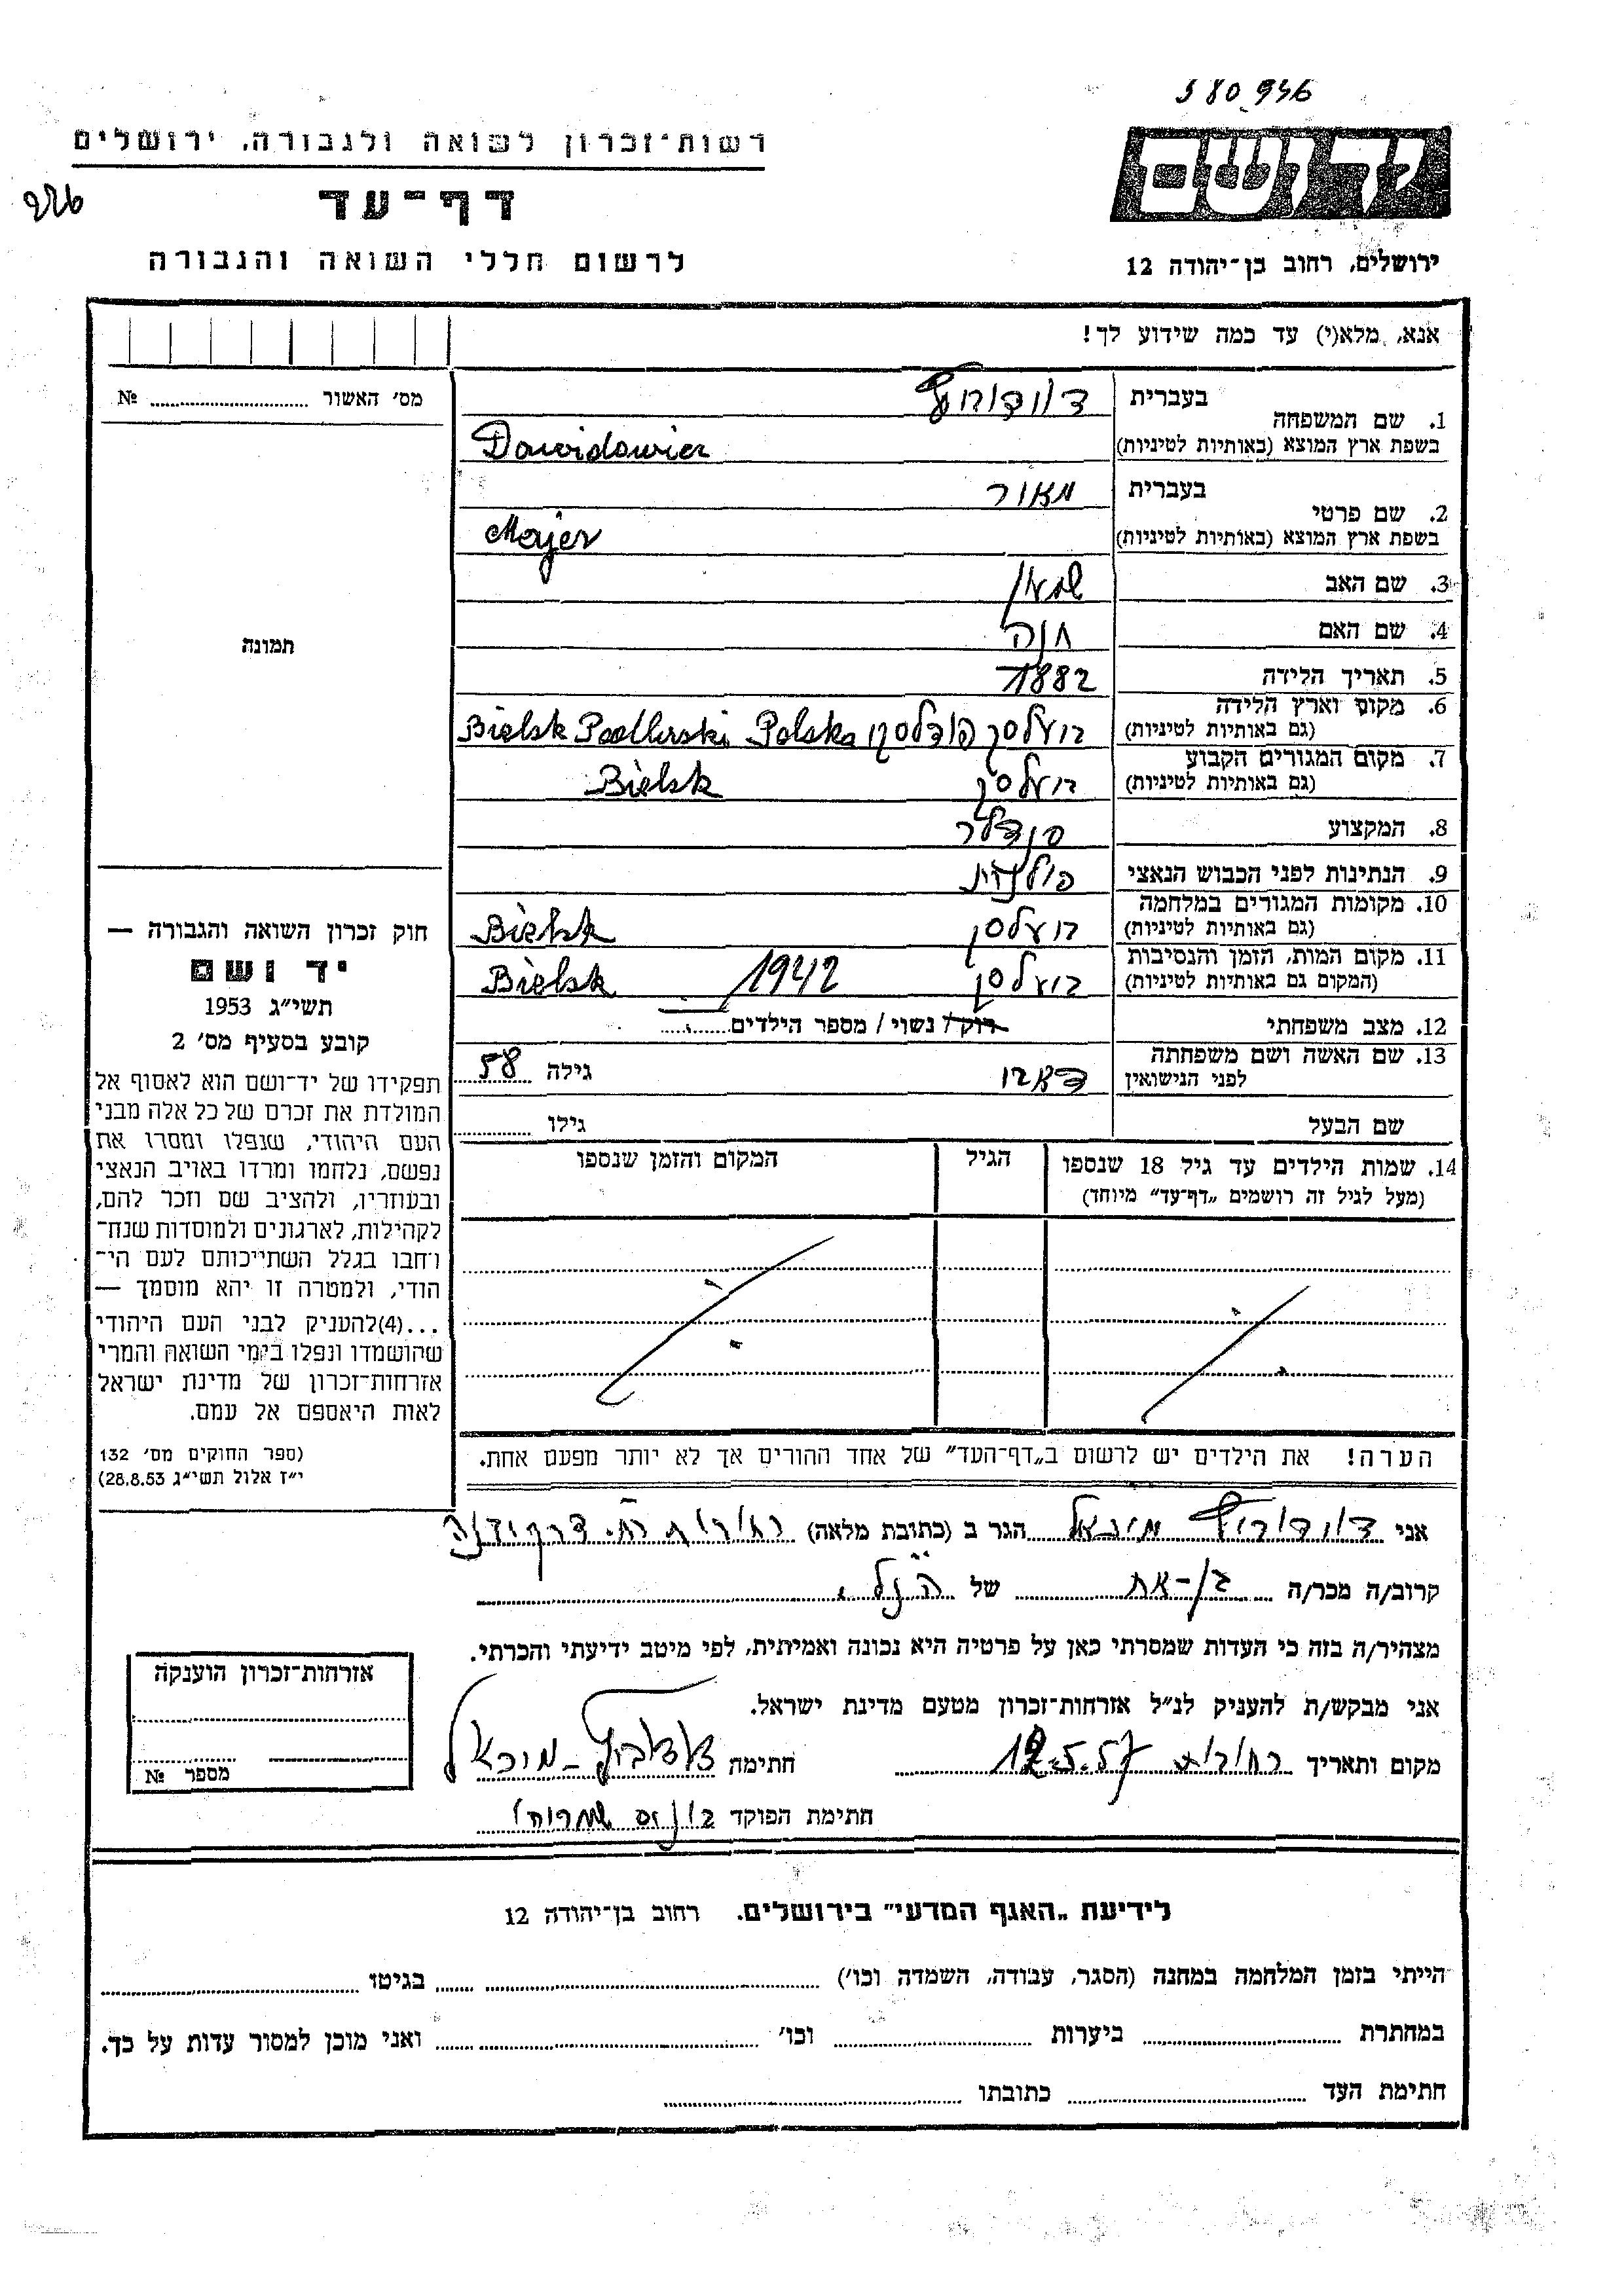 580946
רשות־זכרון לשואה ולגבורה, ירושלים
יד ושם
226
דף־עד
לרשום חללי השואה והגבורה
ירושלים, רחוב בן־יהודה 12
אנא, מלא(י) עד כמה שידוע לך!
מס׳ האשור № ........
1. שם המשפחה בעברית דוידוביץ
בשפת ארץ המוצא (באותיות לטיניות) Dawidowicz
2. שם פרטי בעברית מאיר
בשפת ארץ המוצא (באותיות לטיניות) Majer
3. שם האב שמעון
4. שם האם חנה
5. תאריך הלידה 1882
6. מקום וארץ הלידה (גם באותיות לטיניות) ביעלסק פודלסקי Bielsk Podlaski Polska
7. מקום המגורים הקבוע (גם באותיות לטיניות) ביעלסק Bielsk
8. המקצוע סנדלר
9. הנתינות לפני הכבוש הנאצי פולנית
10. מקומות המגורים במלחמה (גם באותיות לטיניות) ביעלסק Bielsk
11. מקום המות, הזמן והנסיבות (המקום גם באותיות לטיניות) ביעלסק 1942 Bielsk
12. מצב משפחתי רוק/ נשוי / מספר הילדים........
13. שם האשה ושם משפחתה לפני הנישואין גילה 58
שם הבעל גילו ........
14. שמות הילדים עד גיל 18 שנספו הגיל המקום והזמן שנספו
(מעל לגיל זה רושמים „דף־עד” מיוחד)
הערה! את הילדים יש לרשום ב„דף־העד” של אחד ההורים אך לא יותר מפעם אחת.
תמונה
חוק זכרון השואה והגבורה —
יד ושם
תשי״ג 1953
קובע בסעיף מס׳ 2
תפקידו של יד־ושם הוא לאסוף אל
המולדת את זכרם של כל אלה מבני
העם היהודי, שנפלו ומסרו את
נפשם, נלחמו ומרדו באויב הנאצי
ובעוזריו, ולהציב שם וזכר להם,
לקהילות, לארגונים ולמוסדות שנח־
רבו בגלל השתייכותם לעם הי־
הודי, ולמטרה זו יהא מוסמך —
...(4)להעניק לבני העם היהודי
שהושמדו ונפלו בימי השואה והמרי
אזרחות־זכרון של מדינת ישראל
לאות היאספם אל עמם.
(ספר החוקים מס׳ 132
י״ז אלול תשי״ג 28.8.53)
אני דוידוביץ מיכאל הגר ב (כתובת מלאה) רחובות רח.
קרוב/ה מכר/ה בן־אח של הנ״ל.
מצהיר/ה בזה כי העדות שמסרתי כאן על פרטיה היא נכונה ואמיתית, לפי מיטב ידיעתי והכרתי.
אני מבקש/ת להעניק לנ״ל אזרחות־זכרון מטעם מדינת ישראל.
מקום ותאריך רחובות 12.5.57 חתימה דוידוביץ־מיכאל
חתימת הפוקד
אזרחות־זכרון הוענקה
מספר №
לידיעת „האגף המדעי” בירושלים. רחוב בן־יהודה 12
הייתי בזמן המלחמה במחנה (הסגר, עבודה, השמדה וכו׳) ........ בגיטו ........
במחתרת ........ ביערות ........ וכו׳ ........ ואני מוכן למסור עדות על כך.
חתימת העד ........ כתובתו ........